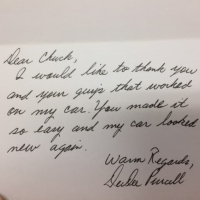 Dear Chuck,
I would like to thank you
and your guys that worked
on my car. You made it
so easy and my car looked
new again.
Warm Regards,
DeeDee Purcell